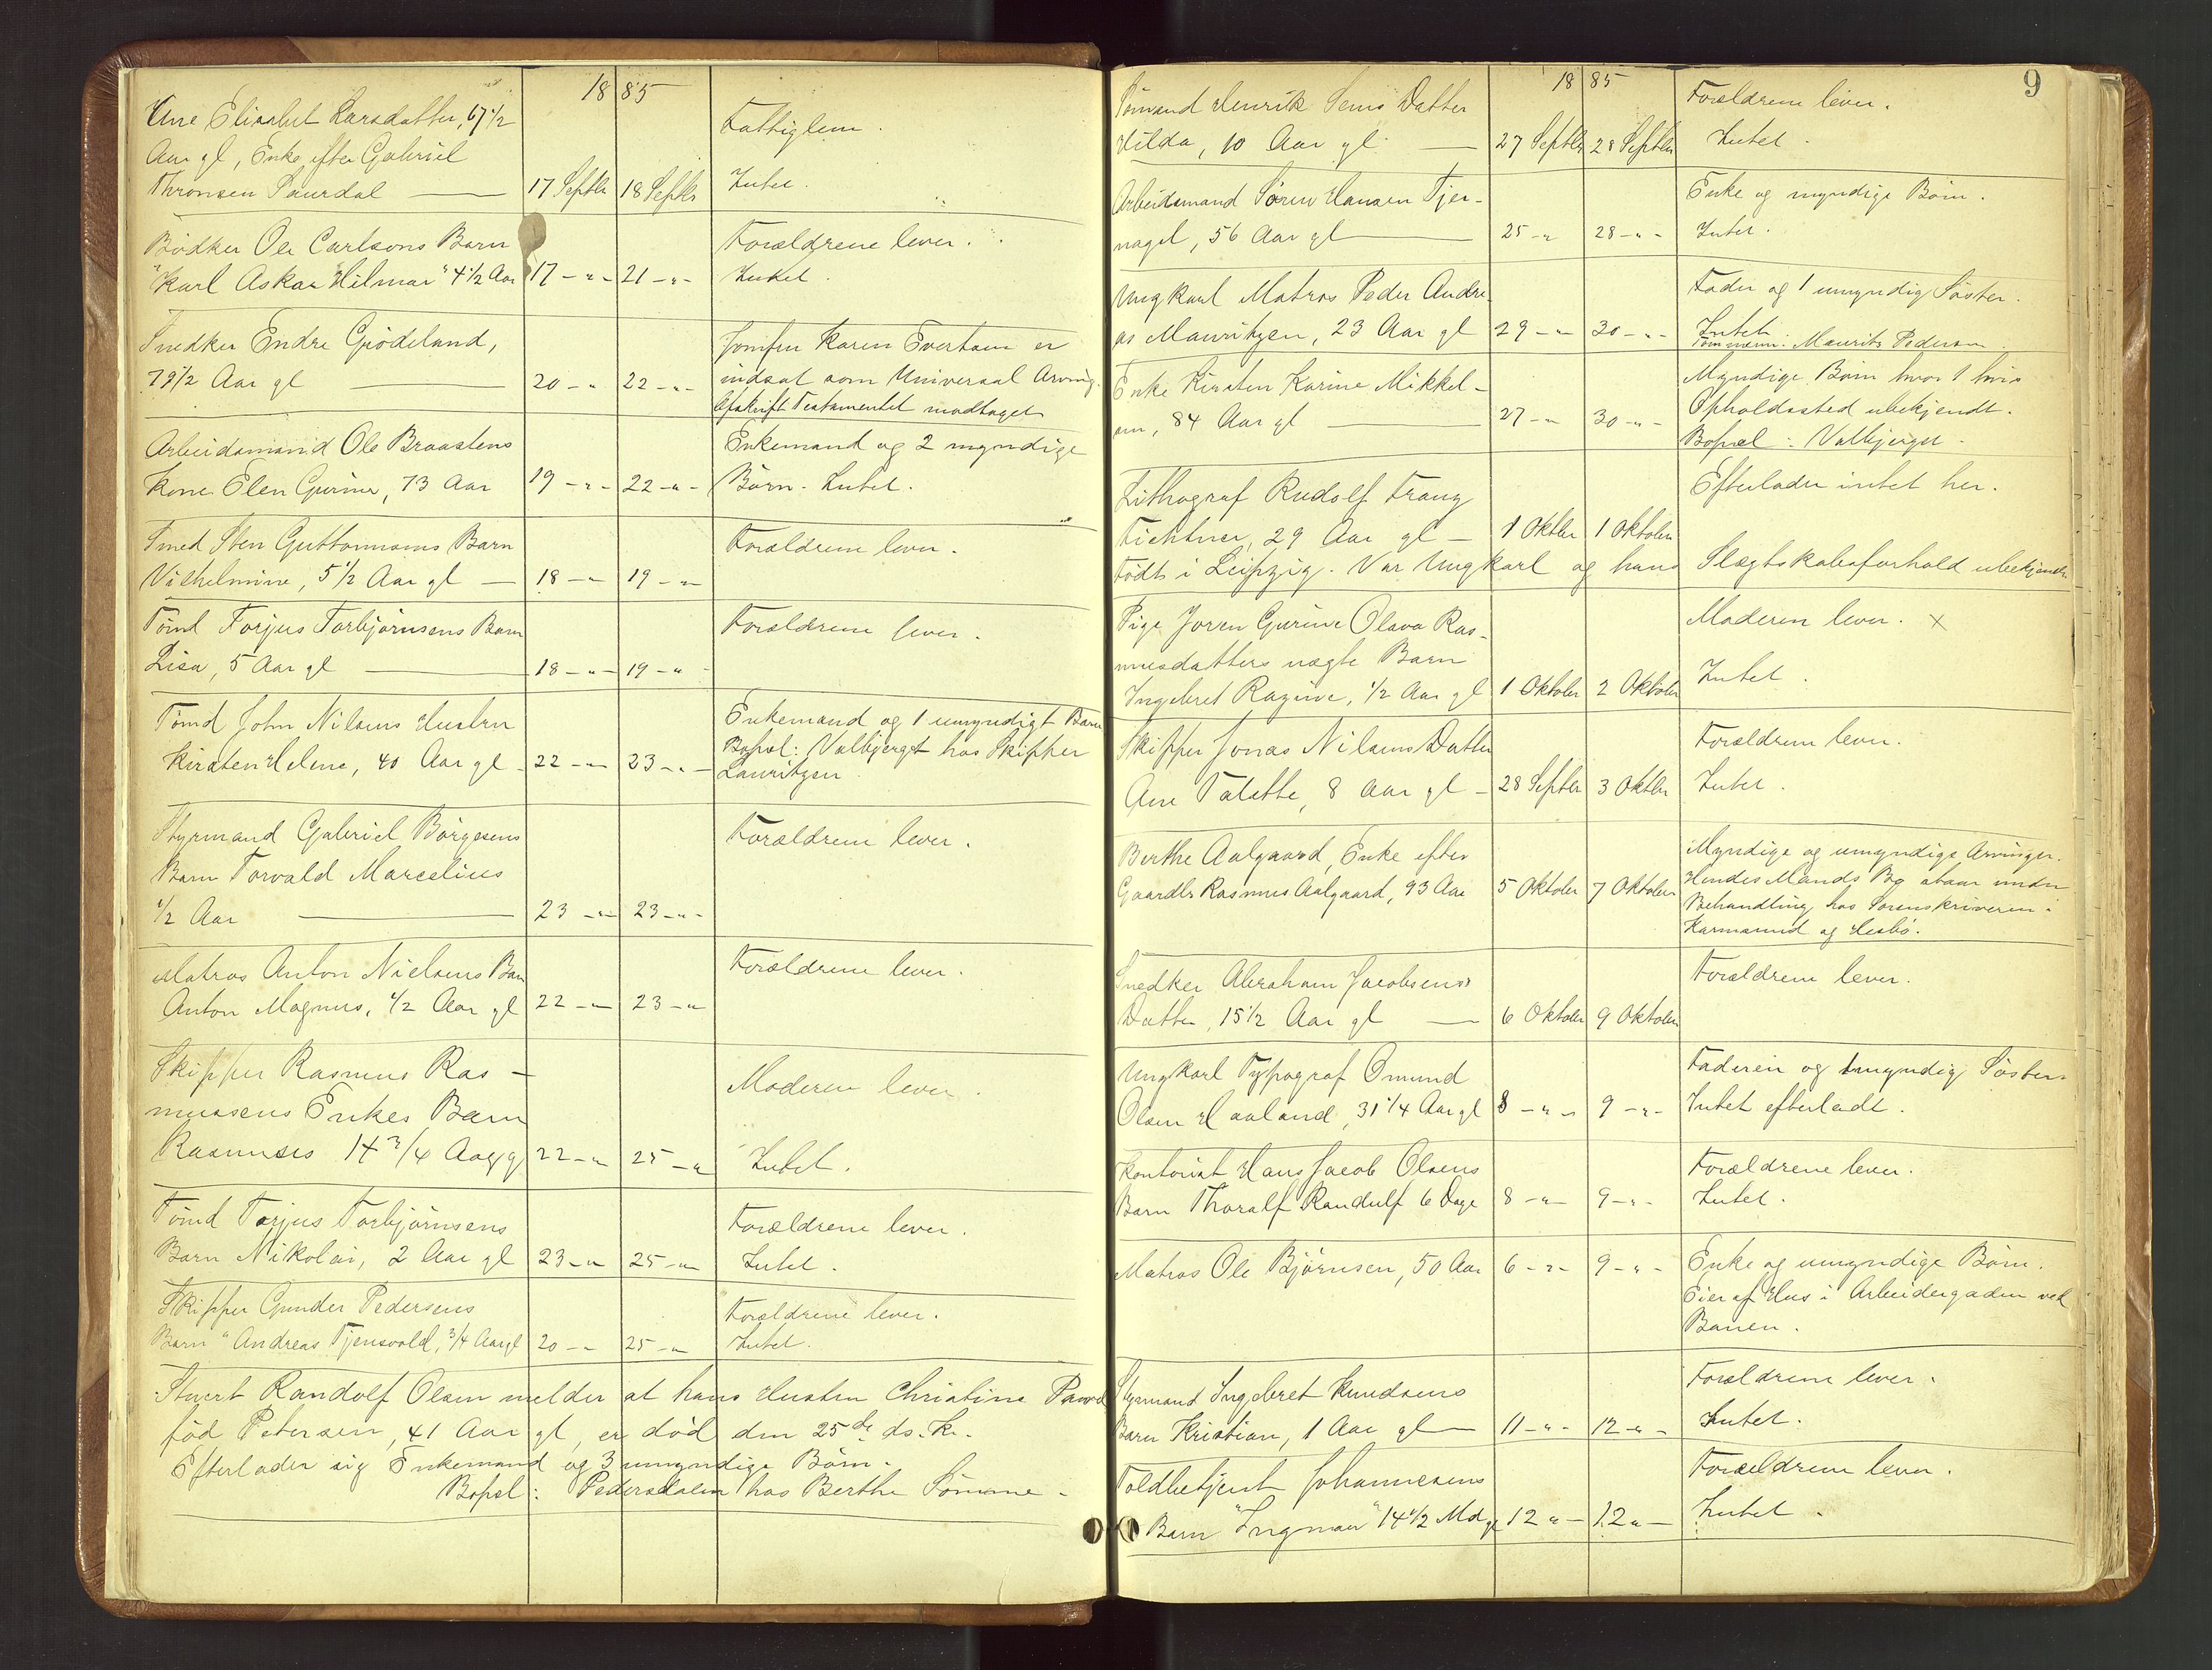 18 85
Ane Elisabet Larsdatter, 67 1/2
Aar gl, Enke efter Gabriel
Thronsen Saurdal — 17 Septbr 18 Septbr
Fattiglem.
Intet.
Bødker Ole Carlsens Barn
"Karl Askar Hilmar" 4 1/2 Aar 17 - " - 21 - " -
Forældrene lever.
Intet.
Snedker Endre Grødeland,
79 1/2 Aar gl — 20 - " 22 - " -
Jomfru Karen Evertsen er
indsat som Universal Arving.
Gjenskrift Testamentet modtaget
Arbeidsmand Ole Braastens
Kone Elen Gurine, 73 Aar 19 - " - 22 - " -
Enkemand og 2 myndige
Børn. Intet.
Smed Sten Guttormsens Barn
Vilhelmine, 5 1/2 Aar gl — 18 - " 19 - "
Forældrene lever.
Tømd Torjus Torbjørnsens Barn
Lisa, 5 Aar gl — 18 - " - 19 - " -
Forældrene lever.
Tømd John Nilsens Hustru
Kirsten Helene, 40 Aar gl - 22 - " 23 - " -
Enkemand og 1 umyndigt Barn
Bopæl: Valbjerget hos Skipper
Lauritzen
Styrmand Gabriel Børgesens
Barn Torvald Marcelius
1/2 Aar — 23 - " 23 - " -
Forældrene lever.
Matros Anton Nielsens Barn
Anton Magnus, 1/2 Aar gl 22 - " 23 - "
Forældrene lever.
Skipper Rasmus Ras -
mussens Enkes Barn
Rasmus 14 3/4 Aar gl 22 - " 25 - "
Moderen lever.
Intet.
Tømd Torjus Torbjørnsens
Barn Nikolai, 2 Aar gl 23 - " 25 - "
Forældrene lever.
Intet.
Skipper Gunder Pedersens
Barn "Andreas Tjensvold, 3/4 Aar gl 20 - " 25 - "
Forældrene lever.
Intet.
Stuert Randolf Olsen melder at hans Hustru Christine
fød Petersen, 41 Aar gl, er død den 25de ds. Kr.
Efterlader sig Enkemand og 3 umyndige Børn.
Bopæl: Pedersdalen hos Berthe Sømme.
18 85 9
Sømand Henrik Sems Datter
Hilda, 10 Aar gl — 27 Septbr 28 Septbr
Forældrene lever.
Intet.
Arbeidsmand Søren Hansen Tjer-
nagel, 56 Aar gl — 25 - " 28 - " -
Enke og myndige Børn.
Intet.
Ungkarl Matros Peder Andre-
as Mauritzen, 23 Aar gl 29 - " 30 - " -
Fader og 1 umyndig Søster.
Intet.
Tømmerm. Maurits Pedersen
Enke Kirsten Karine Mikkel-
sen, 84 Aar gl — 27 - " 30 - " -
Myndige Børn hvor 1 hvis
Opholdssted ubekjendt.
Bopæl: Valbjerget.
Lithograf Rudolf Franz
Fichtner, 29 Aar gl — 1 Oktbr 1 Oktober
Efterlader intet her.
Født i Leipzig. Var Ungkarl og hans Slægtskabsforhold ubekjendt
Pige Joren Gurine Olava Ras-
musdatters uægte Barn
Ingeberet Ragine, 1/2 Aar gl 1 Oktober 2 Oktober
Moderen lever. x
Intet.
Skipper Jonas Nilsens Datter
Ane Talette, 8 Aar gl - 28 Septbr 3 Oktbr
Forældrene lever.
Intet.
Berthe Aalgaard, Enke efter
Gaardbr Rasmus Aalgaard, 93 Aar 5 Oktober 7 Oktober
Myndige og umyndige Arvinger.
Hendes Mands Bo staar under
Behandling hos Sorenskriveren i
Karmsund og Hesbø.
Snedker Abraham Jacobsens
Datter, 15 1/2 Aar gl — 6 Oktober 9 Oktober
Forældrene lever.
Ungkarl Typograf Omund
Olsen Haaland, 31 1/4 Aar gl 8 - " - 9 - " -
Faderen og umyndig Søster.
Intet efterladt.
Kontorist Hans Jacob Olsens
Barn Thoralf Randulf 6 Dage 8 - " 9 - " -
Forældrene lever.
Intet.
Matros Ole Bjørnsen, 50 Aar 6 - " - 9 - " -
Enke og umyndige Børn.
Eier af Hus i Arbeidergaden ved
Banen.
Styrmand Ingeberet Knudsens
Barn Kristian, 1 Aar gl — 11 - " - 12 - " -
Forældrene lever.
Intet.
Toldbetjent Johannesens
Barn "Ingman" 14 1/2 Md gl 12 " - 12 " -
Forældrene lever.
Intet.